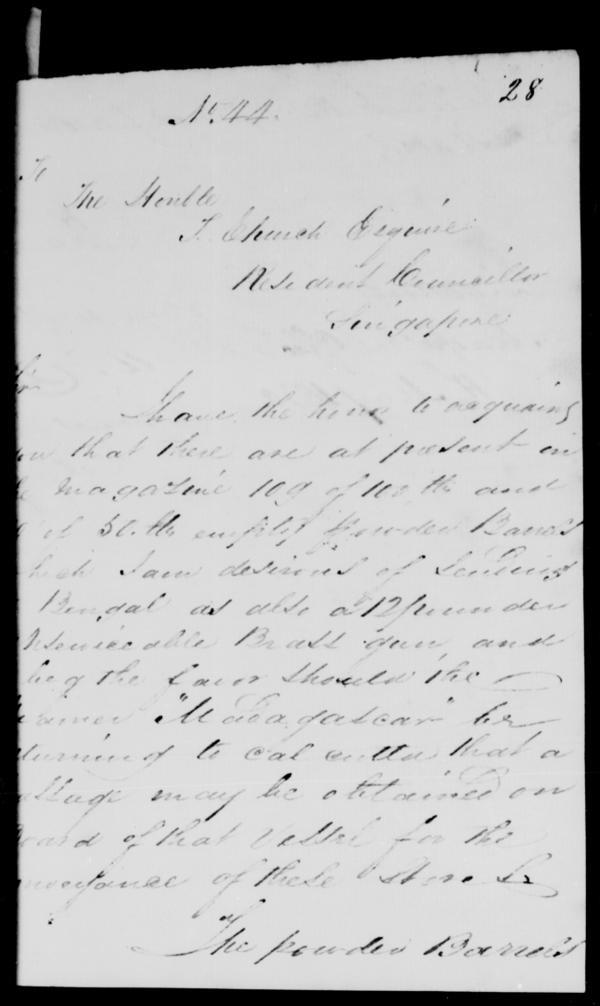 28
No. 44.
To
The Honble
T. Church Esquire
Resident Councillor
Singapore
Sir
I have the honor to acquaint
you that there are at present in
the Magazine 109 of 100 lb and
of 50 lb empty Powder Barrels
which I am desirous of sending
Bengal as also a 12 pounder
unserviceable Brass gun, and
beg the favor should the
Steamer "Madagascar" be
returning to Calcutta that a
passage may be obtained on
board of that Vessel for the
conveyance of these Stores
The powder Barrels